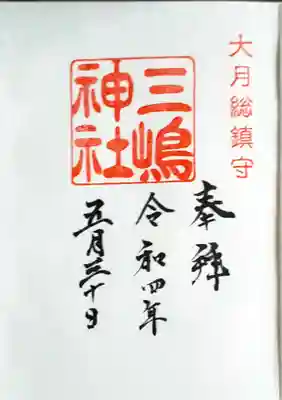 大月総鎮守
奉拜
三嶋
神社
令和四年
五月三十日